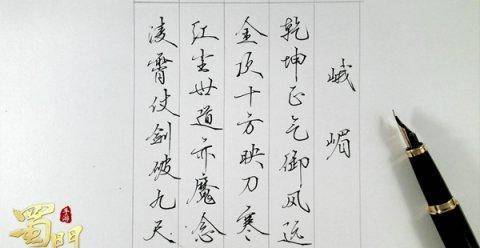 峨嵋
乾坤正气御风远
金顶十方映刀寒
红尘世道亦魔念
凌霄仗剑破九天
蜀門
手游